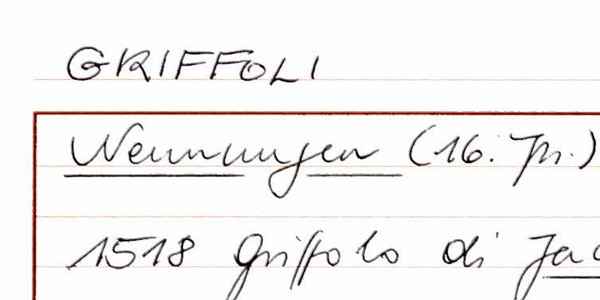 GRIFFOLI
Nennungen (16. Jh.)
1518 Griffolo di Jac